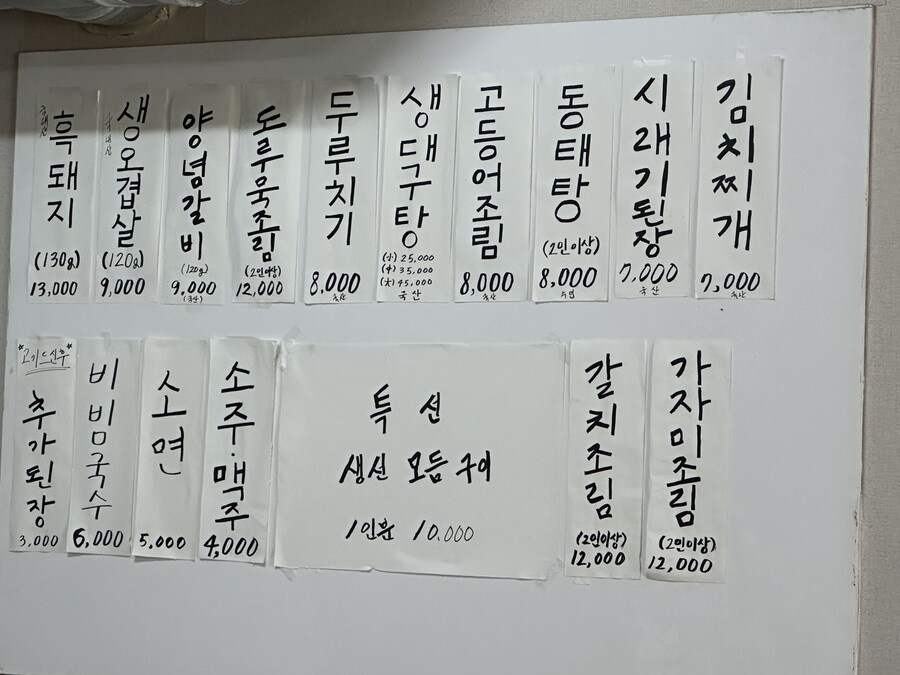 국내산
흑돼지
(130g)
13,000
국내산
생오겹살
(120g)
9,000
양념갈비
(120g)
9,000
(국산)
도루묵조림
(2인이상)
12,000
두루치기
8,000
국산
생대구탕
(小) 25,000
(中) 35,000
(大) 45,000
국산
고등어조림
8,000
국산
동태탕
(2인이상)
8,000
시래기된장
7,000
국산
김치찌개
7,000
국산
*고기드신후*
추가된장
3,000
비빔국수
6,000
소면
5,000
소주·맥주
4,000
특선
생선 모듬 구이
1인분 10,000
갈치조림
(2인이상)
12,000
가자미조림
(2인이상)
12,000